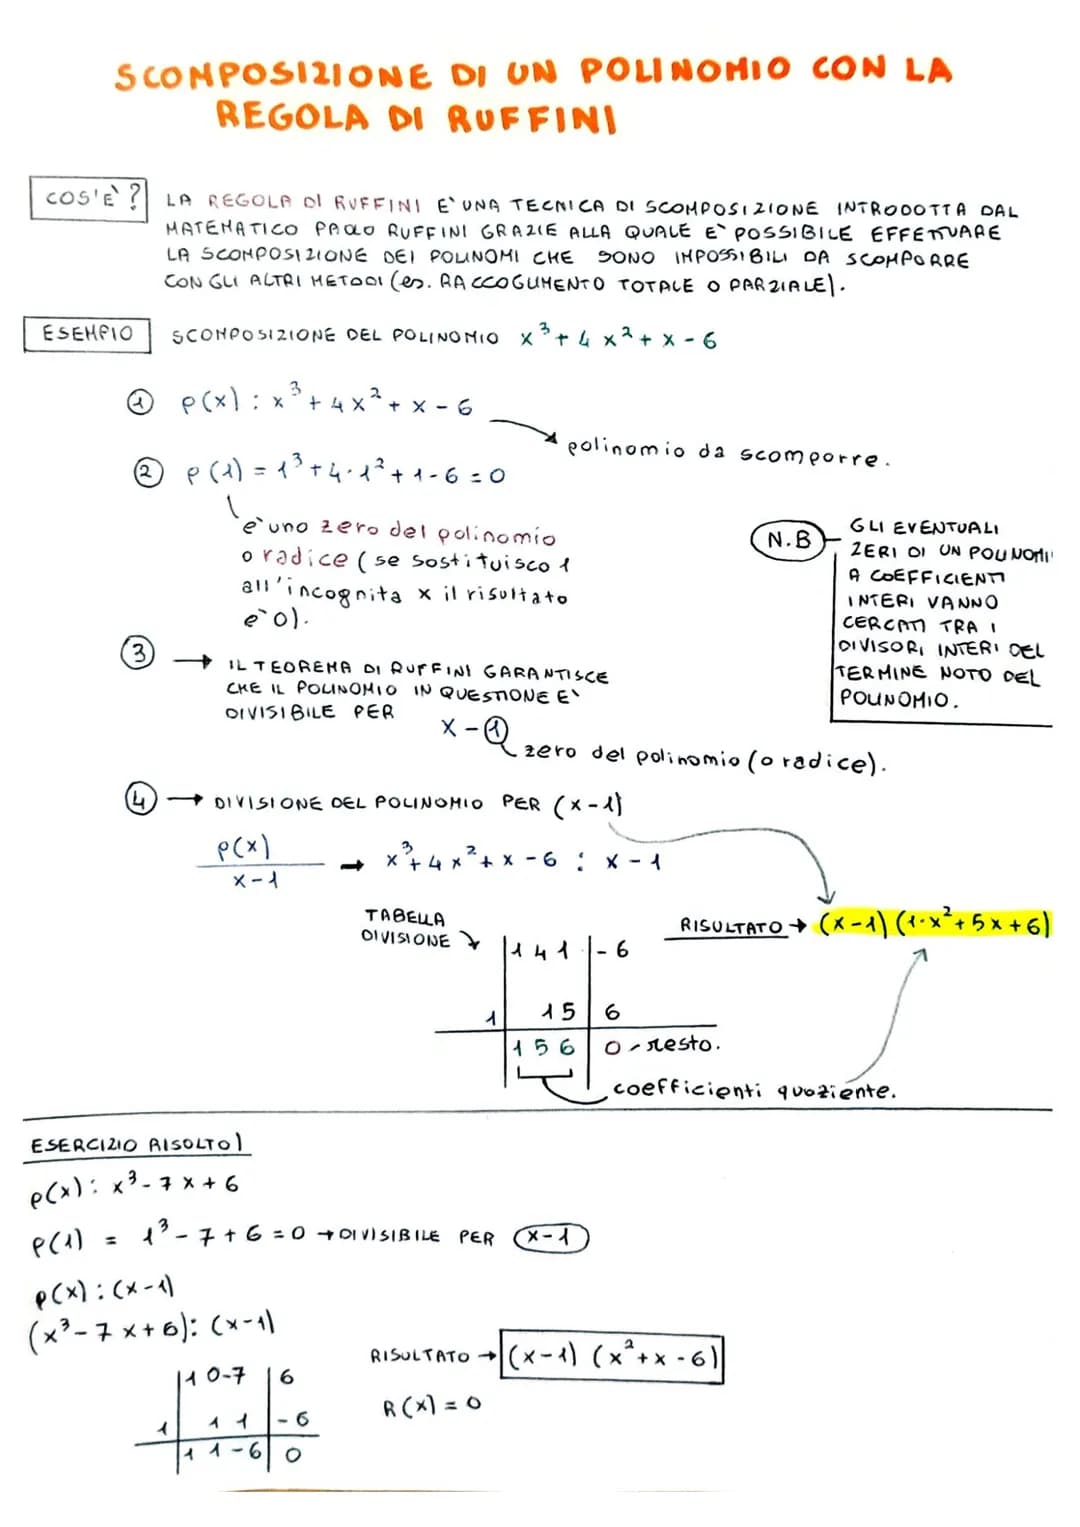 SCOMPOSIZIONE DI UN POLINOMIO CON LA
REGOLA DI RUFFINI
COS'È? LA REGOLA DI RUFFINI E' UNA TECNICA DI SCOMPOSIZIONE INTRODOTTA DAL
MATEMATICO PAOLO RUFFINI GRAZIE ALLA QUALE E' POSSIBILE EFFETTUARE
LA SCOMPOSIZIONE DEI POLINOMI CHE SONO IMPOSSIBILI DA SCOMPORRE
CON GLI ALTRI METODI (es. RACCOGLIMENTO TOTALE O PARZIALE).
ESEMPIO SCOMPOSIZIONE DEL POLINOMIO x³ + 4x² + x - 6
① p(x): x³ + 4x² + x - 6
polinomio da scomporre.
② p(1) = 1³ + 4·1² + 1 - 6 = 0
e' uno zero del polinomio
o radice (se sostituisco 1
all'incognita x il risultato
e' 0).
N.B GLI EVENTUALI
ZERI DI UN POLINOMI
A COEFFICIENTI
INTERI VANNO
CERCATI TRA I
DIVISORI INTERI DEL
TERMINE NOTO DEL
POLINOMIO.
③ → IL TEOREMA DI RUFFINI GARANTISCE
CHE IL POLINOMIO IN QUESTIONE E'
DIVISIBILE PER
x - 1
zero del polinomio (o radice).
④ → DIVISIONE DEL POLINOMIO PER (x-1)
p(x)
x-1
→ x³ + 4x² + x - 6 : x - 1
TABELLA
DIVISIONE
RISULTATO → (x-1) (1·x² + 5x + 6)
1 4 1 | -6
1 | 1 5 | 6
1 5 6 | 0 - resto.
coefficienti quoziente.
ESERCIZIO RISOLTO)
p(x): x³ - 7x + 6
p(1) = 1³ - 7 + 6 = 0 → DIVISIBILE PER x-1
p(x) : (x-1)
(x³ - 7x + 6) : (x-1)
RISULTATO → (x-1) (x² + x - 6)
R(x) = 0
1 0 -7 | 6
1 | 1 1 | -6
1 1 -6 | 0